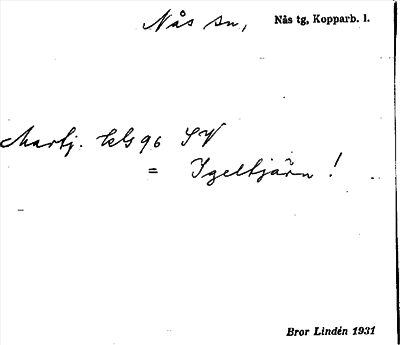 Nås sn, Nås tg, Kopparb. l.
Martj. kbl 96 SV
= Igeltjärn !
Bror Lindén 1931